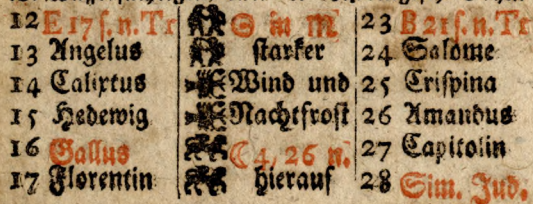 12 E 17 s. n. Tr ☉ in ♏ 23 B 21 s. n. Tr
13 Angelus starker 24 Salome
14 Calixtus Wind und 25 Crispina
15 Hedewig Nachtfrost 26 Amandus
16 Gallus ☾ 4, 26 n. 27 Capitolin
17 Florentin hierauf 28 Sim. Jud.